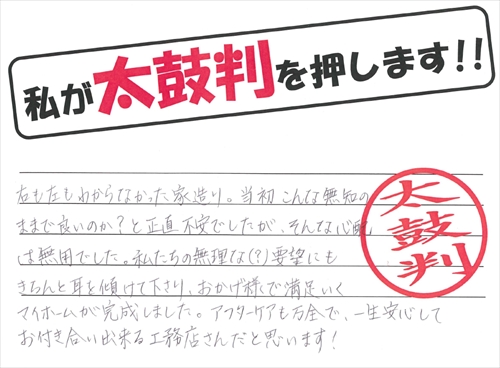 私が太鼓判を押します!!
右も左もわからなかった家造り。当初こんな無知の
ままで良いのか?と正直不安でしたが、そんな心配
は無用でした。私たちの無理な(?)要望にも
きちんと耳を傾けて下さり、おかげ様で満足いく
マイホームが完成しました。アフターケアも万全で、一生安心して
お付き合い出来る工務店さんだと思います!
太鼓判